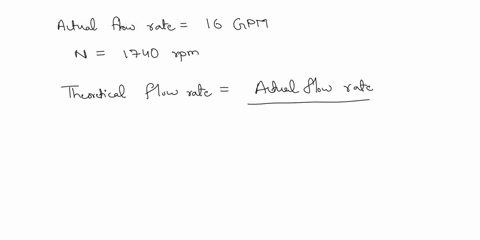 Actual flow rate = 16 GPM
N = 1740 rpm
Theoretical flow rate = Actual flow rate